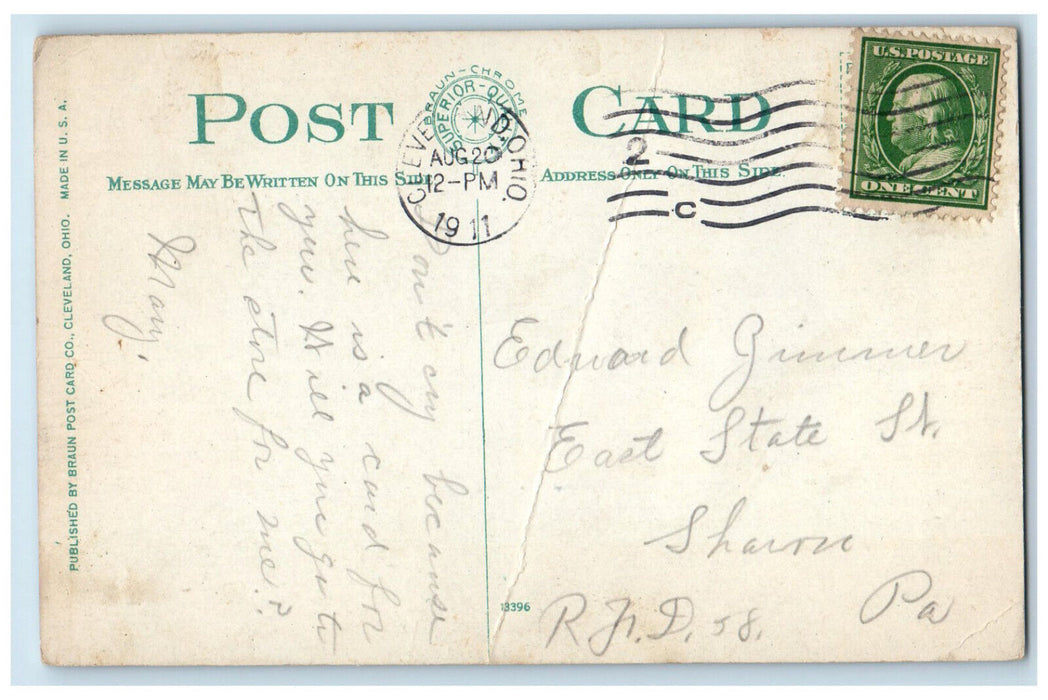 POST CARD
BRAUN-CHROME
SUPERIOR-QUALITY
CLEVELAND, OHIO.
AUG 20
12-PM
1911
2
C
U.S. POSTAGE
ONE CENT
MESSAGE MAY BE WRITTEN ON THIS SIDE
ADDRESS ONLY ON THIS SIDE.
PUBLISHED BY BRAUN POST CARD CO., CLEVELAND, OHIO. MADE IN U. S. A.
Don't cry because
here is a card for
you. Will you go to
the store for me?
Mary.
Edward Zimmer
East State St.
Sharon
Pa
R.F.D. 58.
13396